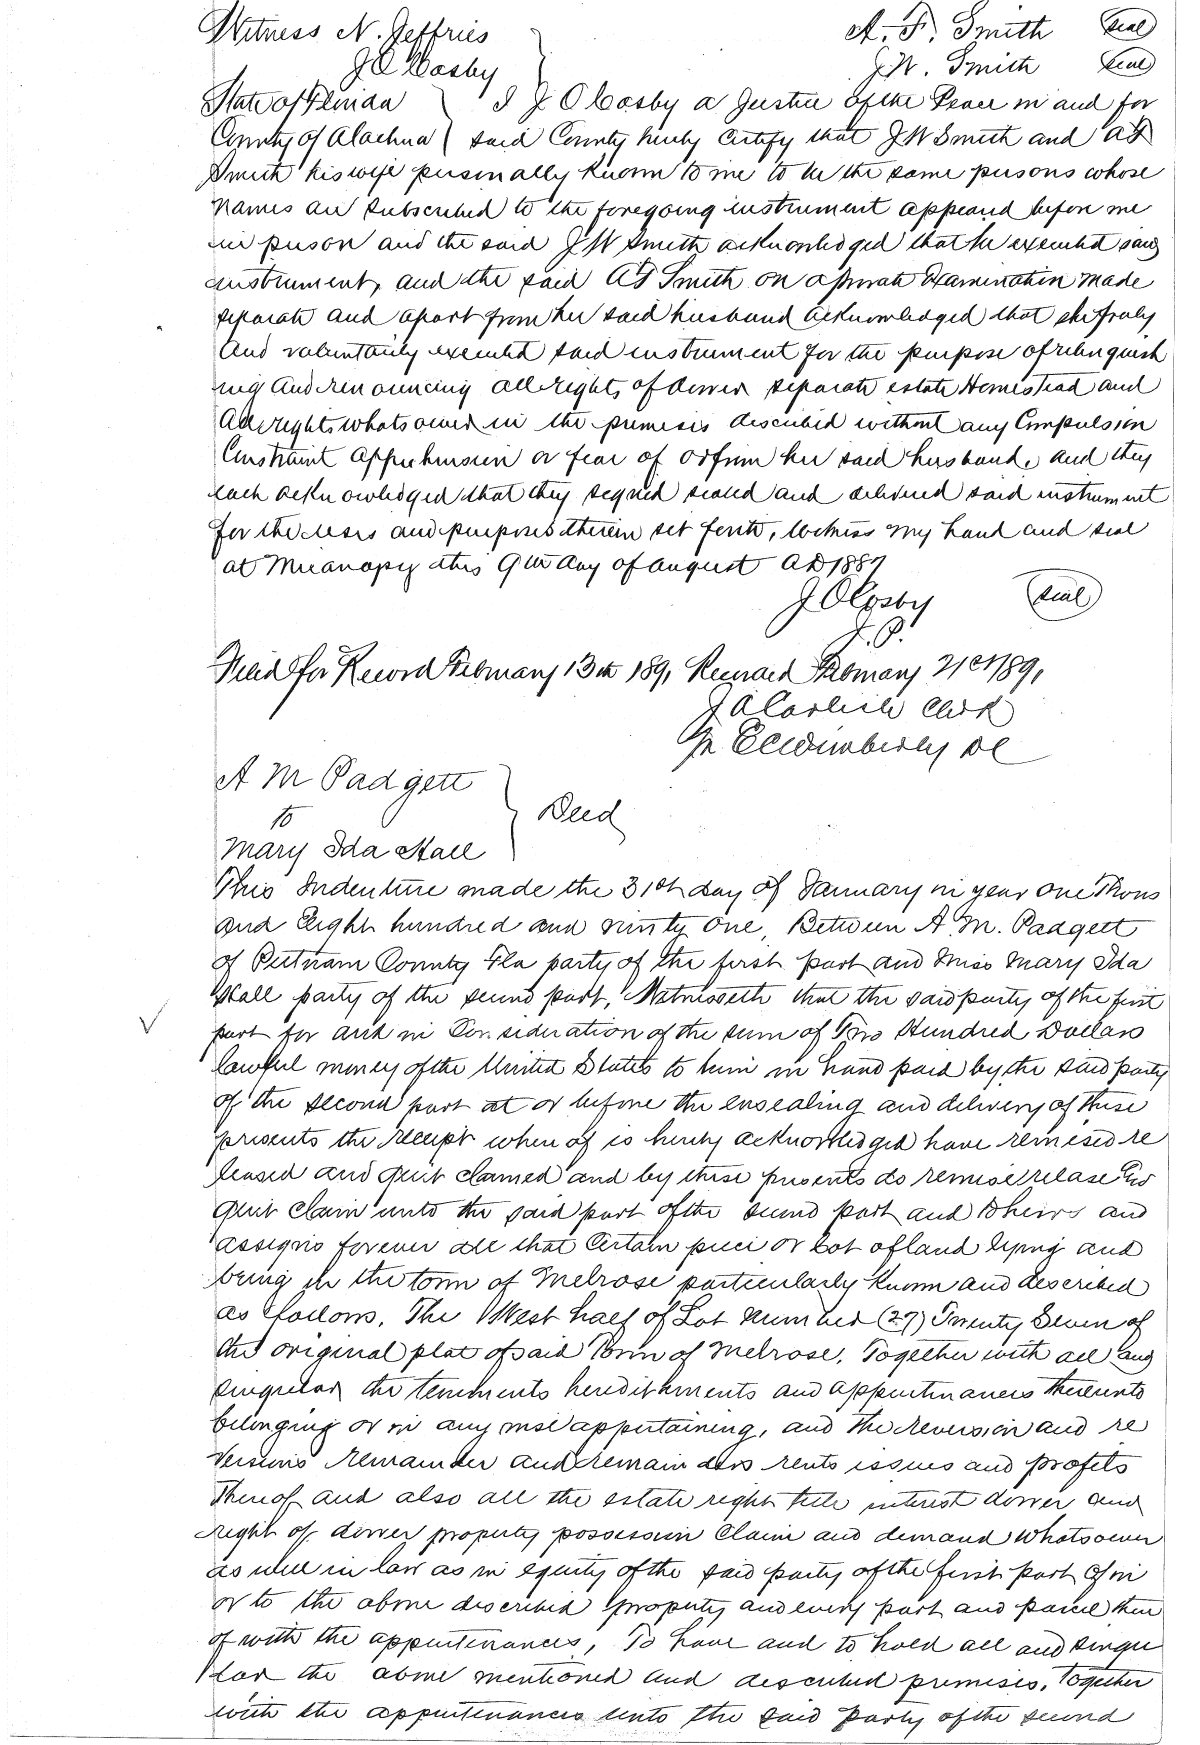 Witness N. Jeffries A. F. Smith Seal
J O Cosby J. W. Smith Seal
State of Florida I J O Cosby a Justice of the Peace in and for
County of Alachua said County hereby certify that J W Smith and A F
Smith his wife personally known to me to be the same persons whose
names are subscribed to the foregoing instrument appeared before me
in person and the said J W Smith acknowledged that he executed said
instrument, and the said A F Smith on a private examination made
separate and apart from her said husband acknowledged that she freely
and voluntarily executed said instrument for the purpose of relinquish
ing and renouncing all rights of dower separate estate Homestead and
all rights whatsoever in the premises described without any Compulsion
Constraint apprehension or fear of or from her said husband, and they
each acknowledged that they signed sealed and delivered said instrument
for the uses and purposes therein set forth, Witness my hand and seal
at Micanopy this 9th day of August AD 1887
J O Cosby Seal
J. P.
Filed for Record February 13th 189, Record February 21st 189,
J A Carlisle Clerk
Pr E C Wimberley DC
A M Padgett
to Deed
Mary Ida Hall
This Indenture made the 31st day of January in year One Thous
and Eight hundred and ninty One, Between A. M. Padgett
of Putnam County Fla party of the first part and Miss Mary Ida
Hall party of the second part, Witnesseth that the said party of the first
part for and in Consideration of the sum of Two Hundred Dollars
lawful money of the United States to him in hand paid by the said party
of the second part at or before the ensealing and delivery of these
presents the receipt where of is hereby acknowledged have remised re
leased and quit claimed and by these presents do remise release and
quit claim unto the said part of the second part and heirs and
assigns forever all that Certain piece or Lot of land lying and
being in the town of Melrose particularly known and described
as follows. The West half of Lot number (27) Twenty Seven of
the original plat of said Town of Melrose. Together with all and
singular the tenements hereditaments and appurtinances thereunto
belonging or in any wise appertaining, and the reversion and re
versions remainder and remainders rents issues and profits
thereof and also all the estate right title interest dower and
right of dower property possession Claim and demand whatsoever
as well in law as in equity of the said party of the first part of in
or to the above described property and every part and parcel there
of with the appurtenances, To have and to hold all and singu
lar the above mentioned and described premises, Together
with the appurtenances unto the said party of the second